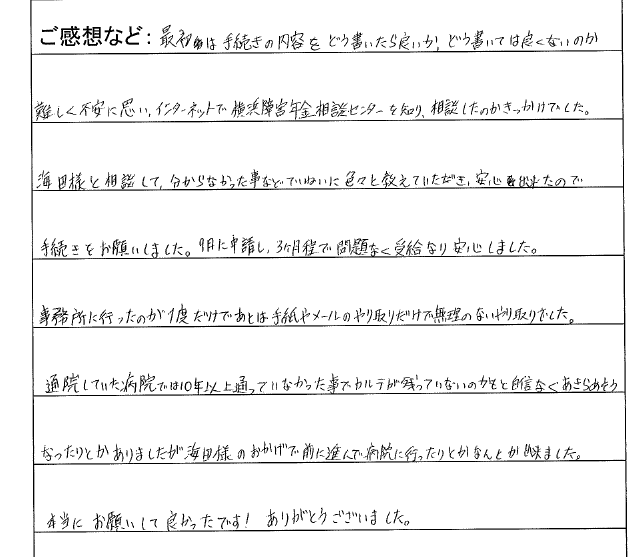 ご感想など：最初は手続きの内容をどう書いたら良いか、どう書いては良くないのか
難しく不安に思い、インターネットで横浜障害年金相談センターを知り、相談したのがきっかけでした。
海田様と相談して、分からなかった事などていねいに色々と教えていただき、安心出来たので
手続きをお願いしました。9月に申請し、3ヶ月程で問題なく受給なり安心しました。
事務所に行ったのが1度だけであとは手紙やメールのやり取りだけで無理のないやり取りでした。
通院していた病院では10年以上通っていなかった事でカルテが残っていないのかもと自信なくあきらめそう
なったりとかありましたが海田様のおかげで前に進んで病院に行ったりとかなんとか出来ました。
本当にお願いして良かったです！ありがとうございました。